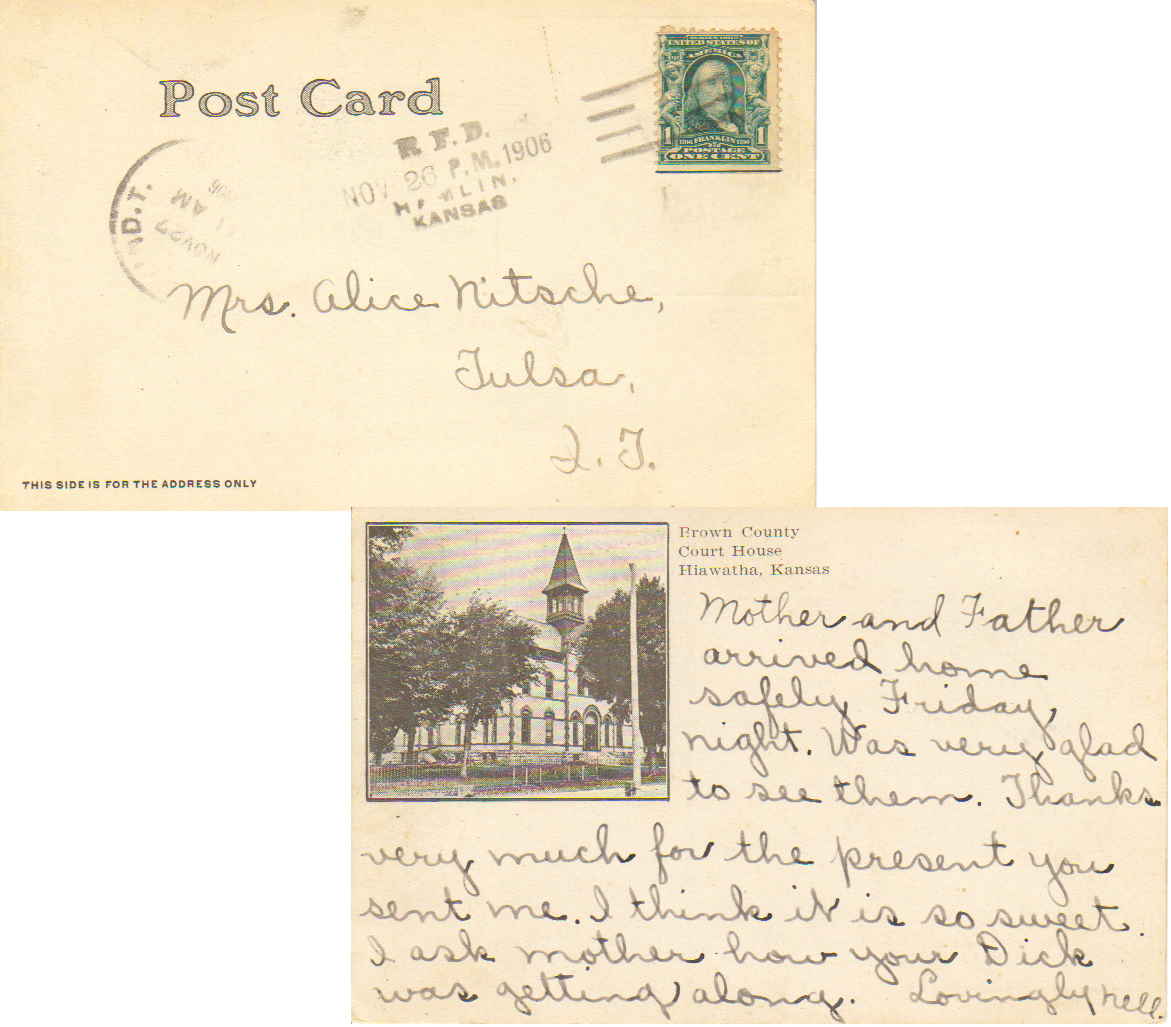 Post Card
UNITED STATES OF
AMERICA
1 1706 FRANKLIN 1790 1
POSTAGE
ONE CENT
R.F.D.
NOV 26 P.M. 1906
KANSAS
IND.T.
NOV 27
AM
1906
Mrs. Alice Nitsche,
Tulsa,
I. T.
THIS SIDE IS FOR THE ADDRESS ONLY
Brown County
Court House
Hiawatha, Kansas
Mother and Father
arrived home
safely Friday,
night. Was very glad
to see them. Thanks
very much for the present you
sent me. I think it is so sweet.
I ask mother how your Dick
was getting along. Lovingly Nell.